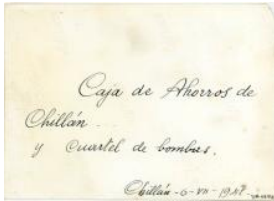 Caja de Ahorros de
Chillán...
y cuartel de bombas.
Chillán - 6 - VII - 19